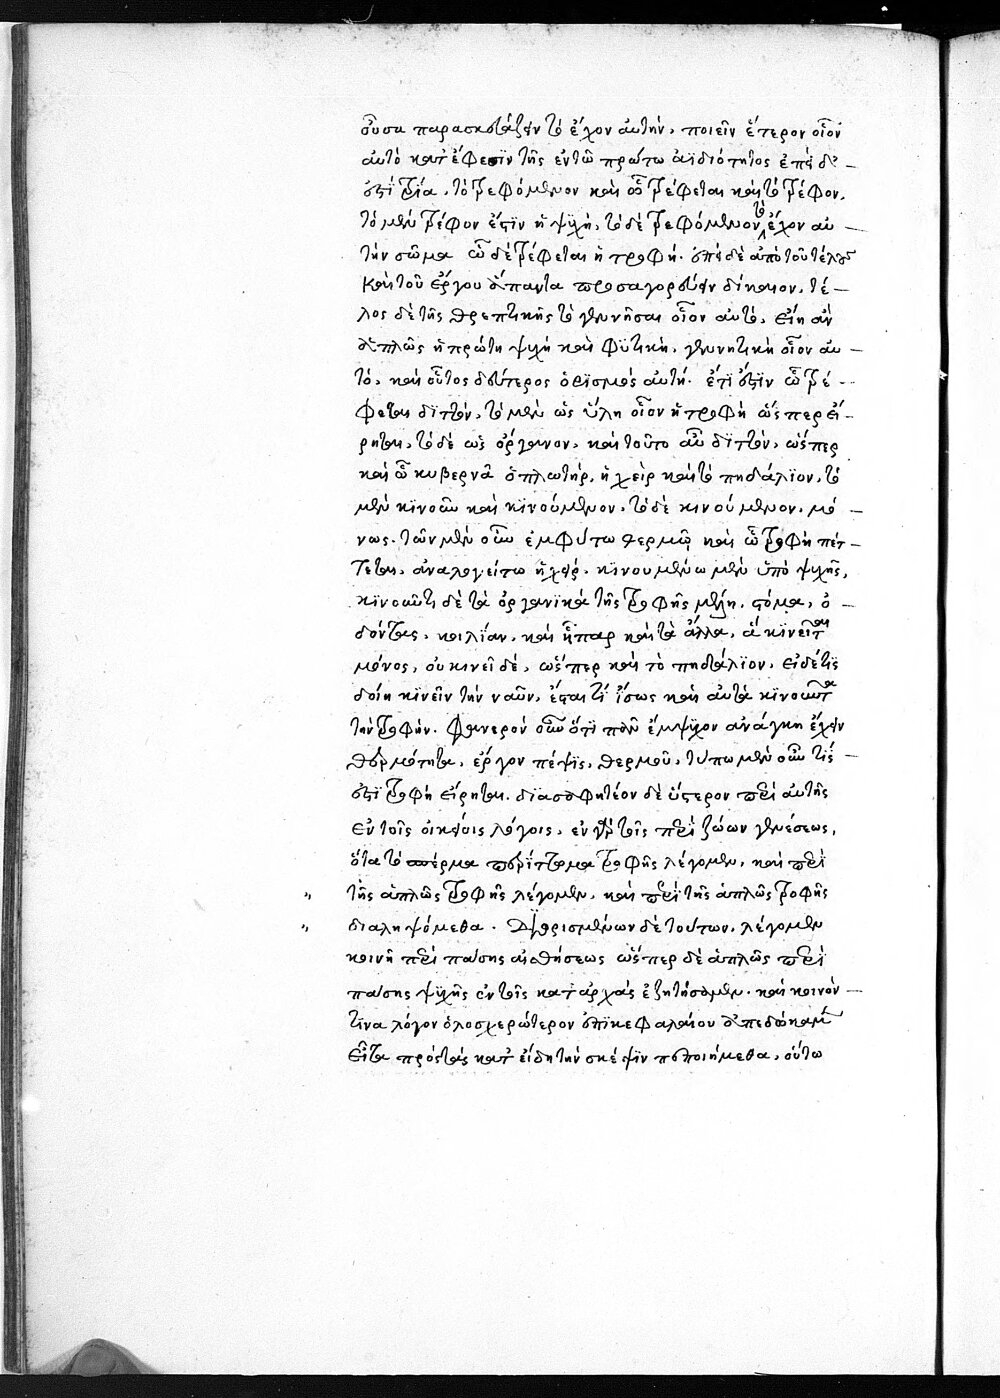 οὖσα παρασκευάζειν τὸ ἔχον αὐτήν, ποιεῖν ἕτερον οἷον
αὐτὸ κατ' ἔφεσϊν τῆς ἐν τῶ πρώτω ἀϊδιότητος ἐπεὶ δέ
ἐστϊ τρία, τὸ τρεφόμενον καὶ ὧ τρέφεται καὶ τὸ τρέφον,
τὸ μὲν τρέφον ἐστϊν ἡ ψϋχὴ, τὸ δὲ τρεφόμενον τὸ ἔχον αὐ
τὴν σῶμα ὧ δὲ τρέφεται ἡ τροφή. ἐπεὶ δὲ ἀπὸ τοῦ τέλους
καὶ τοῦ ἔργου ἅπαντα προσαγορεύειν δίκαιον, τέ
λος δὲ τῆς θρεπτικῆς τὸ γεννῆσαι οἷον αὐτὸ, εἴη ἂν
ἁπλῶς ἡ πρώτη ψυχὴ καὶ φϋτικὴ, γεννητικὴ οἷον αὐ
τό, καὶ οὗτος δεύτερος ὁρϊσμὸς αὐτῆ. ἔτϊ ἐστϊν ὧ τρέ
φεται δϊττόν, τὸ μὲν ὡς ὕλη οἷον ἡ τροφὴ ὥσπερ εἴ
ρηται, τὸ δὲ ὡς ὄργανον, καὶ τοῦτο αὖ δϊττόν, ὥσπερ
καὶ ὧ κυβερνᾶ ὁ πλωτήρ, ἡ χεὶρ καὶ τὸ πηδάλϊον, τὸ
μὲν κϊνοῦν καὶ κϊνούμενον, τὸ δὲ κινούμενον, μό
νως. τῶν μὲν οὖν ἐμφύτω θερμῶ καὶ ὧ τροφὴ πέτ
τεται, ἀναλογείτω ἡ χείρ, κϊνουμένω μὲν ὑπὸ ψυχῆς,
κϊνοῦντι δὲ τὰ ὀργανϊκὰ τῆς τροφῆς μέρη, στόμα, ὀ
δόντας, κοιλίαν, καὶ ἧπαρ καὶ τὰ ἄλλα, ἃ κϊνεῖται
μόνος, οὐ κινεῖ δὲ, ὥσπερ καὶ τὸ πηδάλϊον, εἰ δέ τϊς
δοίη κϊνεῖν τὴν ναῦν, ἔσται τὶ ἴσως καὶ αὐτὰ κϊνοῦντα
τὴν τροφήν. φανερὸν οὖν ὅτϊ πᾶν ἔμψϋχον ἀνάγκη ἔχειν
θερμότητα, ἔργον πέψϊς, θερμοῦ, τύπω μὲν οὖν τίς
ἐστϊ τροφὴ εἴρηται. δϊασαφητέον δὲ ὕστερον περὶ αὐτῆς
ἐν τοῖς οἰκείοις λόγοις, ἐν γὰρ τοῖς περὶ ζώων γενέσεως,
ὅτα τὸ σπέρμα περίττωμα τροφῆς λέγομεν, καὶ περὶ
τῆς ἁπλῶς τροφῆς λέγομεν, καὶ περὶ τῆς ἁπλῶς τροφῆς
διαληψόμεθα. Διωρισμένων δὲ τούτων, λέγομεν
κοινῆ περὶ πάσης αἰσθήσεως ὥσπερ δὲ ἁπλῶς περὶ
πάσης ψϋχῆς ἐν τοῖς κατ' ἀρχὰς ἐζητήσαμεν. καὶ κοινόν
τϊνα λόγον ὁλοσχερώτερον ἐπϊ κεφαλαίου ἀπεδώκαμεν
Εἶτα πρὸς τὰς κατ' εἴδη τὴν σκέψϊν πεποιήμεθα, οὕτω